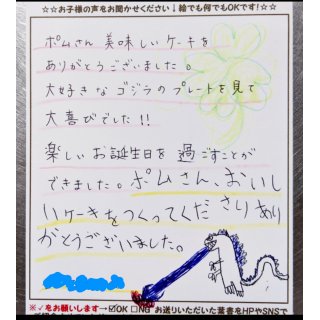 ☆☆お子様の声をお聞かせください↓絵でも何でもOKです!☆☆
ポムさん 美味しいケーキを
ありがとうございました。
大好きなゴジラのプレートを見て
大喜びでした!!
楽しいお誕生日を過ごすことが
できました。ポムさん、おいし
いケーキをつくってくださりあり
がとうございました。
※✓をお願いします→☑OK □NG お送りいただいた葉書をHPやSNSで